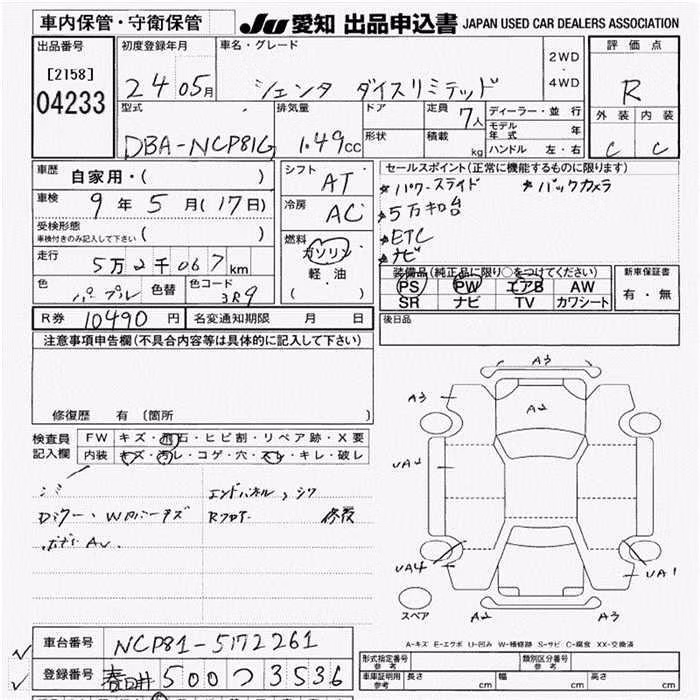 車内保管・守衛保管
JU 愛知 出品申込書 JAPAN USED CAR DEALERS ASSOCIATION
出品番号
[2158]
04233
初度登録年月
24 05月
車名・グレード
シエンタ ダイスリミテッド
2WD
・
4WD
評価点
R
外装 内装
C C
型式
DBA-NCP81G
排気量
1.49cc
ドア
形状
定員 7人
積載 kg
ディーラー・並 行
モデル年式 年
ハンドル 左・右
車歴
自家用・( )
車検
9年 5月(17日)
受検形態
車検付きのみ記入して下さい ( )
走行
5万2千067km
色 パープル 色替
色コード 3R9
シフト AT
冷房 AC
燃料
ガソリン
軽 油
( )
セールスポイント(正常に機能するものに限ります)
★パワースライド ★バックカメラ
★5万キロ台
★ETC
★ナビ
装備品(純正品に限り○をつけてください)
PS PW エアB AW
SR ナビ TV カワシート
新車保証書
有・無
R券 10490円 名変通知期限 月 日
後日品
注意事項申告欄(不具合内容等は具体的に記入して下さい)
修復歴 有 〔箇所 〕
検査員記入欄
FW キズ・飛石・ヒビ割・リペア跡・X要
内装 キズ・汚レ・コゲ・穴・スレ・キレ・破レ
シミ
エンドパネル,シワ
Rフロア 修復
A3
A3
A2
UA2
UA4
UA1
A2
A3
スペア
A-キズ E-エクボ U-凹み W-補修跡 S-サビ C-腐食 XX-交換済
車台番号
NCP81-5172261
登録番号
春日井 500 つ 3536
形式指定番号 参考
類別区分番号 参考
車庫証明用 参考
長さ cm 幅 cm 高さ cm